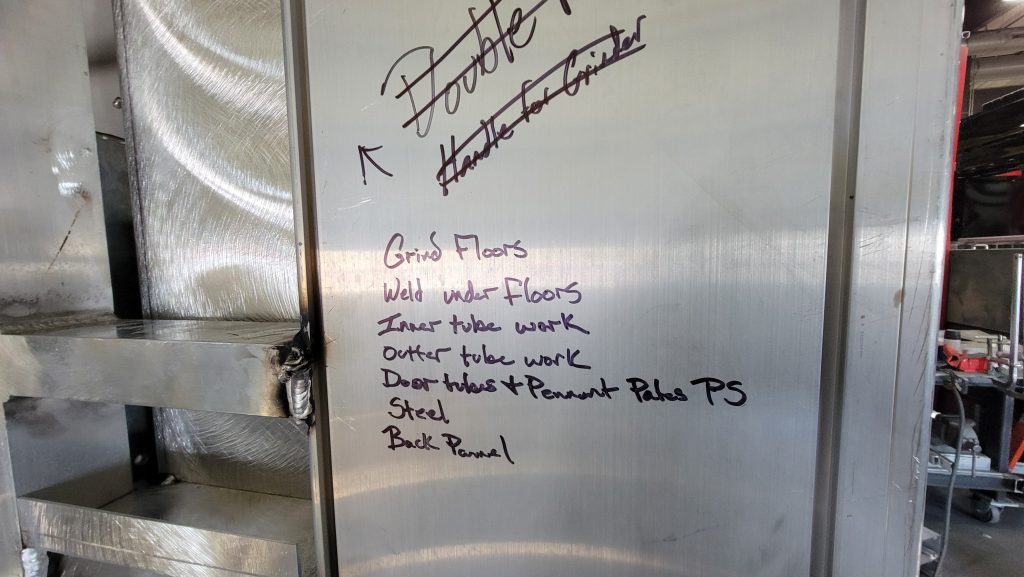 Double
Handle for Grinder
Grind Floors
Weld under Floors
Inner tube work
outter tube work
Door tubes + Pennant Pates PS
Steel
Back Pannel